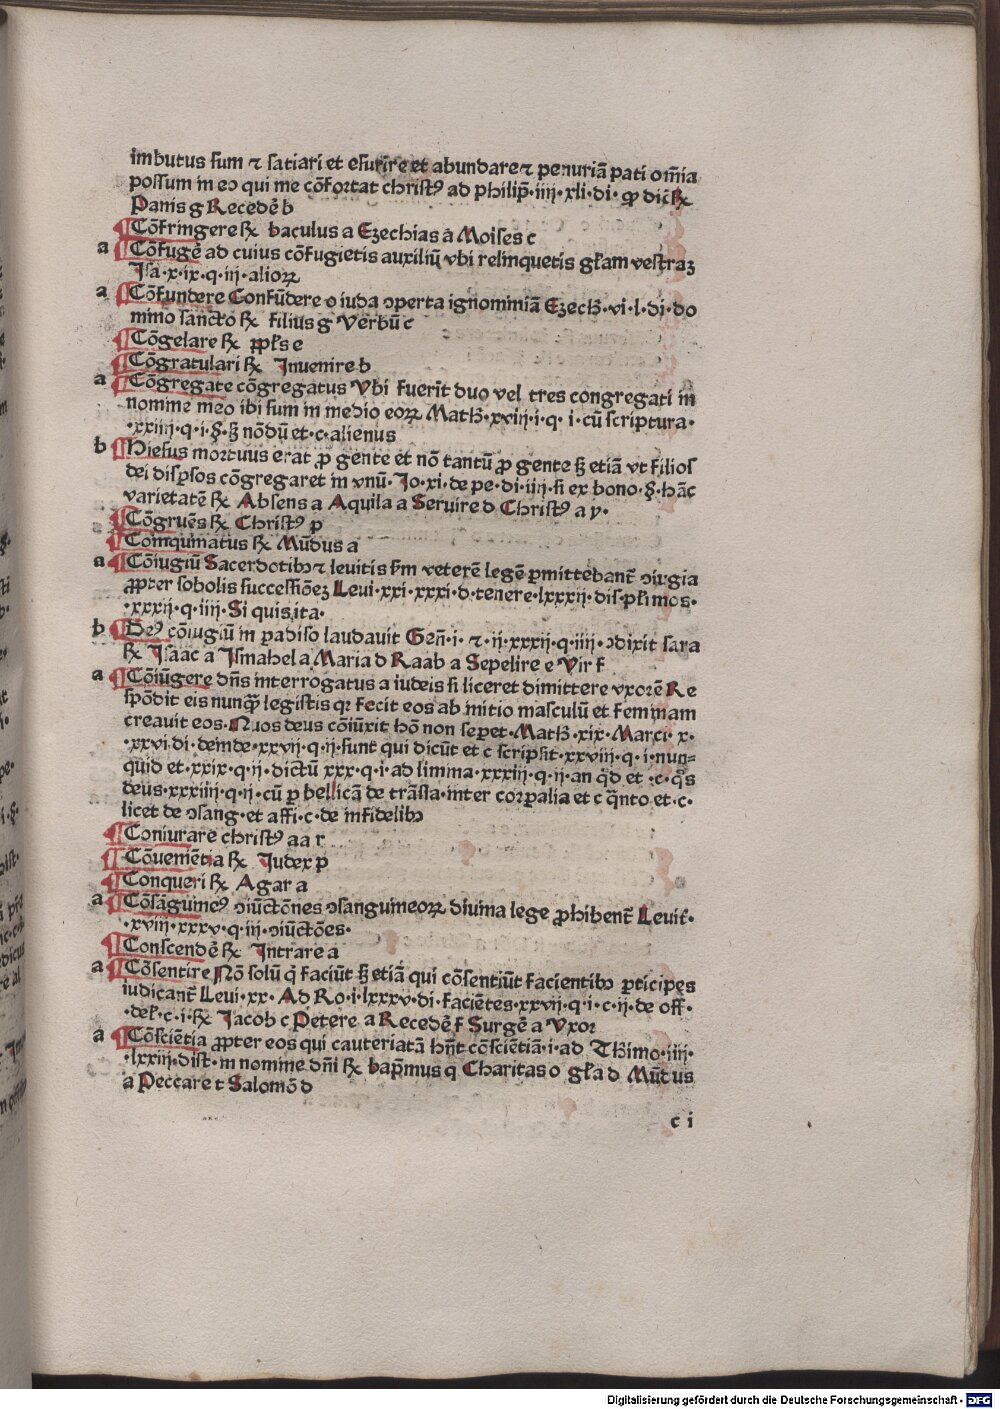 imbutus sum ⁊ satiari et esurire et abundare ⁊ penuriā pati om̄ia
possum in eo qui me cōfortat christꝰ ad philip̄·iiij·xli·di·ꝙ dic̄ ℞
Panis g Recedē b
¶Cōfringere ℞ baculus a Ezechias a Moises c
a ¶Cōfugē ad cuius cōfugietis auxiliū vbi relinquetis gl̄am vestraꝫ
Isa·x·ix·q·iij·alioꝝ
a ¶Cōfundere Confūdere o iuda ꝯperta ignominiā Ezech̄·vi·l·di·do
mino sancto ℞ filius g Verbū c
¶Cōgelare ℞ ꝓpl̄s e
¶Cōgratulari ℞ Inuenire b
a ¶Cōgregate cōgregatus Vbi fuerīt duo vel tres congregati in
nomine meo ibi sum in medio eoꝝ Math̄·xviij·i·q·i·cū scriptura·
·xxiiij·q·i·§·ꝫ nōdū et·c·alienus
b ¶Hiesus mortuus erat ꝓ gente et nō tantū ꝓ gente ꝫ etiā vt filios
dei disꝑsos cōgregaret in vnū·Jo·xi·de pe·di·iiij·si ex bono·§·hāc
varietatē ℞ Absens a Aquila a Seruire d Christꝰ a y·
¶Cōgruēs ℞ Christꝰ p
¶Comquinatus ℞ Mūdus a
a ¶Cōiugiū Sacerdotibꝰ ⁊ leuitis s̄m veterē legē ꝑmittebant̄ ꝯiugia
ꝓpter sobolis successiōeꝫ Leui·xxi·xxxi·d·tenere·lxxxij·dis·pl̄imos·
·xxxij·q·iiij·Si quis ita·
b ¶Deꝰ cōiugiū in ꝑadiso laudauit Gen̄·i·⁊·ij·xxxij·q·iiij·ꝯdixit sara
℞ Isaac a Ismahel a Maria d Raab a Sepelire e Vir f
a ¶Cōiūgere dn̄s interrogatus a iudeis si liceret dimittere vxorē Re
spōdit eis nunꝙ̄ legistis qꝛ fecit eos ab initio masculū et feminam
creauit eos·Quos deus cōiūxit hō non seꝑet·Math̄·xix·Marci·x·
·xxvi·di·deinde·xxvij·q·ij·sunt qui dicūt et c scripsit·xxviij·q·i·nun-
quid et·xxix·q·ij·dictū xxx·q·i·ad limina·xxxiij·q·ij·an qd̄ et·c·qͦs
deus·xxxiiij·q·ij·cū ꝑ bellicā de trāsla·inter corꝑalia et c q̄nto et·c·
licet de ꝯsang·et affi·c·de infidelibꝰ
¶Coniurare christꝰ a a r
¶Cōueniētia ℞ Iudex p
¶Conqueri ℞ Agar a
a ¶Cōsāguineꝰ ꝯiūctōnes ꝯsanguineoꝝ diuina lege ꝓhibent̄ Leuit̄·
·xviij·xxxv·q·iij·ꝯiūctōes·
¶Conscendē ℞ Intrare a
a ¶Cōsentire Nō solū q̄ faciūt ꝫ etiā qui cōsentiūt facientibꝰ ꝑticipes
iudicant̄ Leui·xx·Ad Ro·i·lxxxv·di·faciētes·xxvij·q·i·c·ij·de off·
·del̄·c·i·℞ Jacob c Petere a Recedē f Surgē a Vxor
a ¶Cōsciētia ꝓpter eos qui cauteriatā hn̄t cōsciētiā·i·ad Thimo·iiij·
·lxxiij·dist·in nomine dn̄i ℞ bap̄mus q Charitas o gl̄a d Mūdus
a Peccare t Salomō d
c i
Digitalisierung gefördert durch die Deutsche Forschungsgemeinschaft - DFG